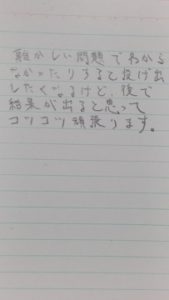 難かしい問題でわから
なかったりすると投げ出
したくなるけど、後で
結果が出ると思って
コツコツ頑張ります。